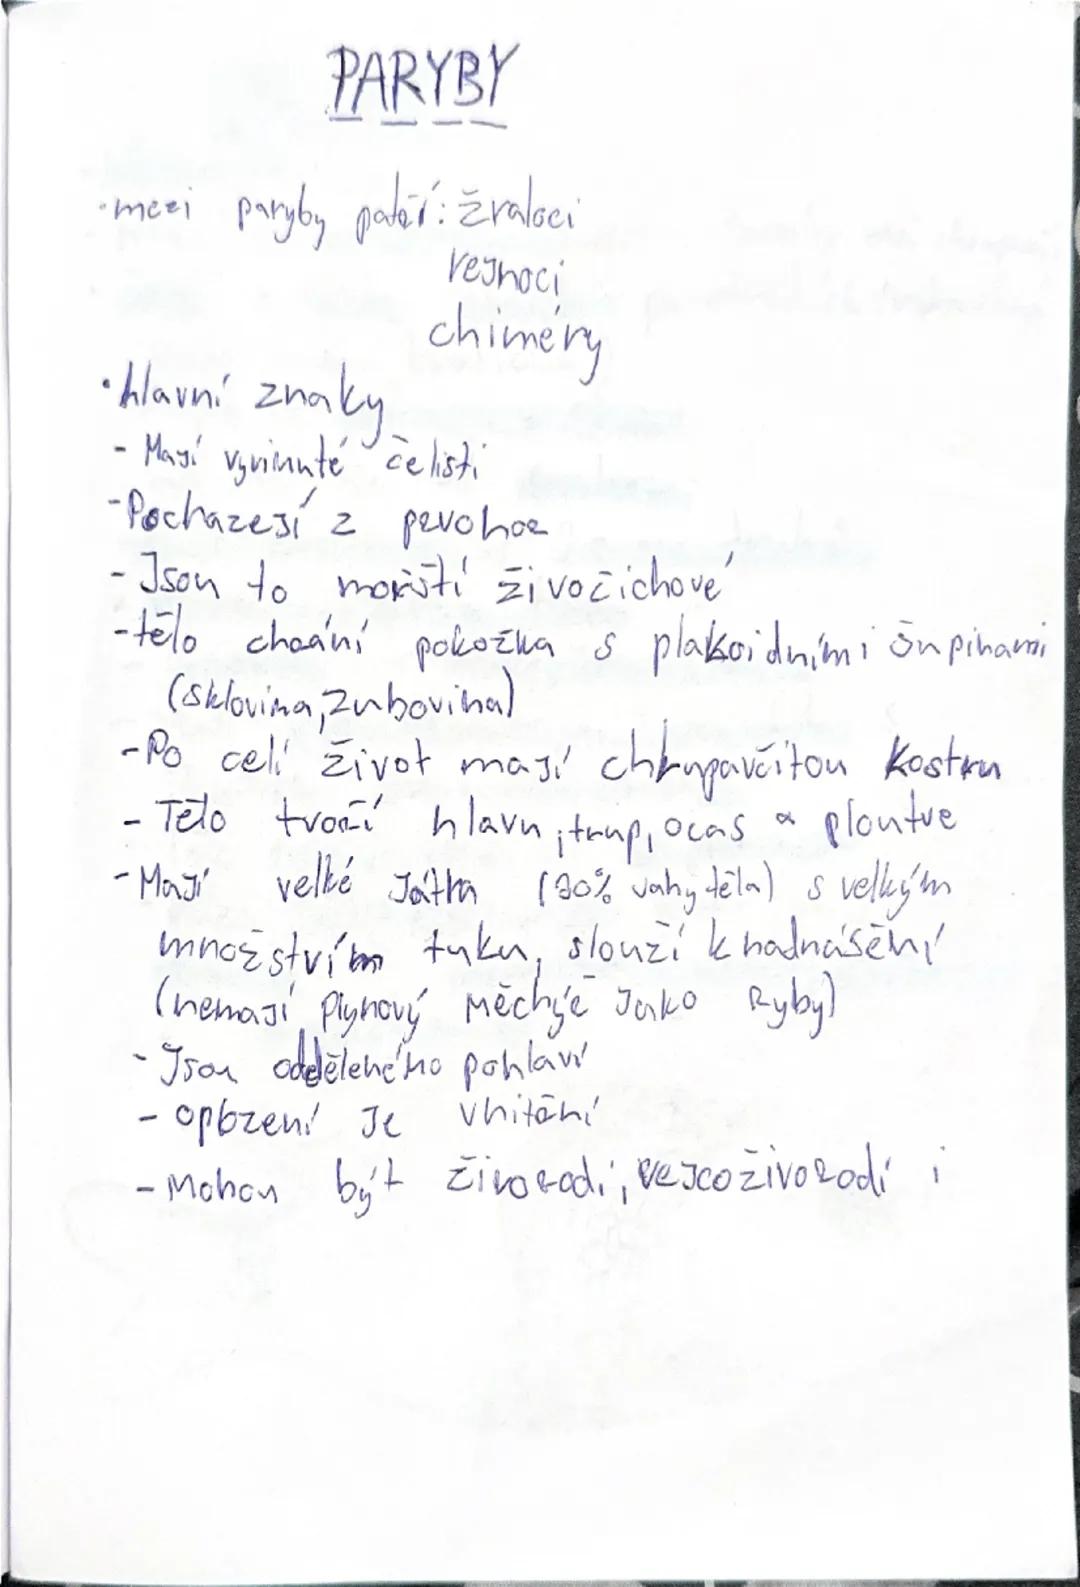 PARYBY
·mezi paryby patří: žraloci
rejnoci
chiméry
·hlavní znaky
- Mají vyvinuté čelisti
- Pocházejí z prvohor
- Jsou to mořští živočichové
- tělo chrání pokožka s plakoidními šupinami
(sklovina, zubovina)
- Po celí život mají chrupavčitou kostru
- Tělo tvoří hlavu, trup, ocas a ploutve
- Mají velké Játra (30% váhy těla) s velkým
množstvím tuku, slouží k nadnášení
(nemají plynový měchýř Jako Ryby)
- Jsou odděleného pohlaví
- oplození Je vnitřní
- Mohou být živorodí, vejcoživorodí i